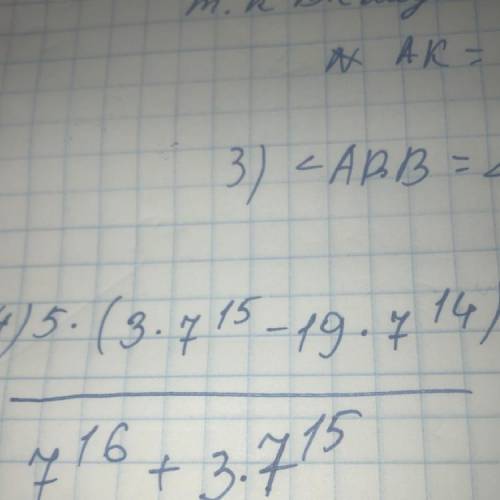 AK =
3) <ABB = <
4) 5 · (3 · 7¹⁵ - 19 · 7¹⁴)
7¹⁶ + 3 · 7¹⁵